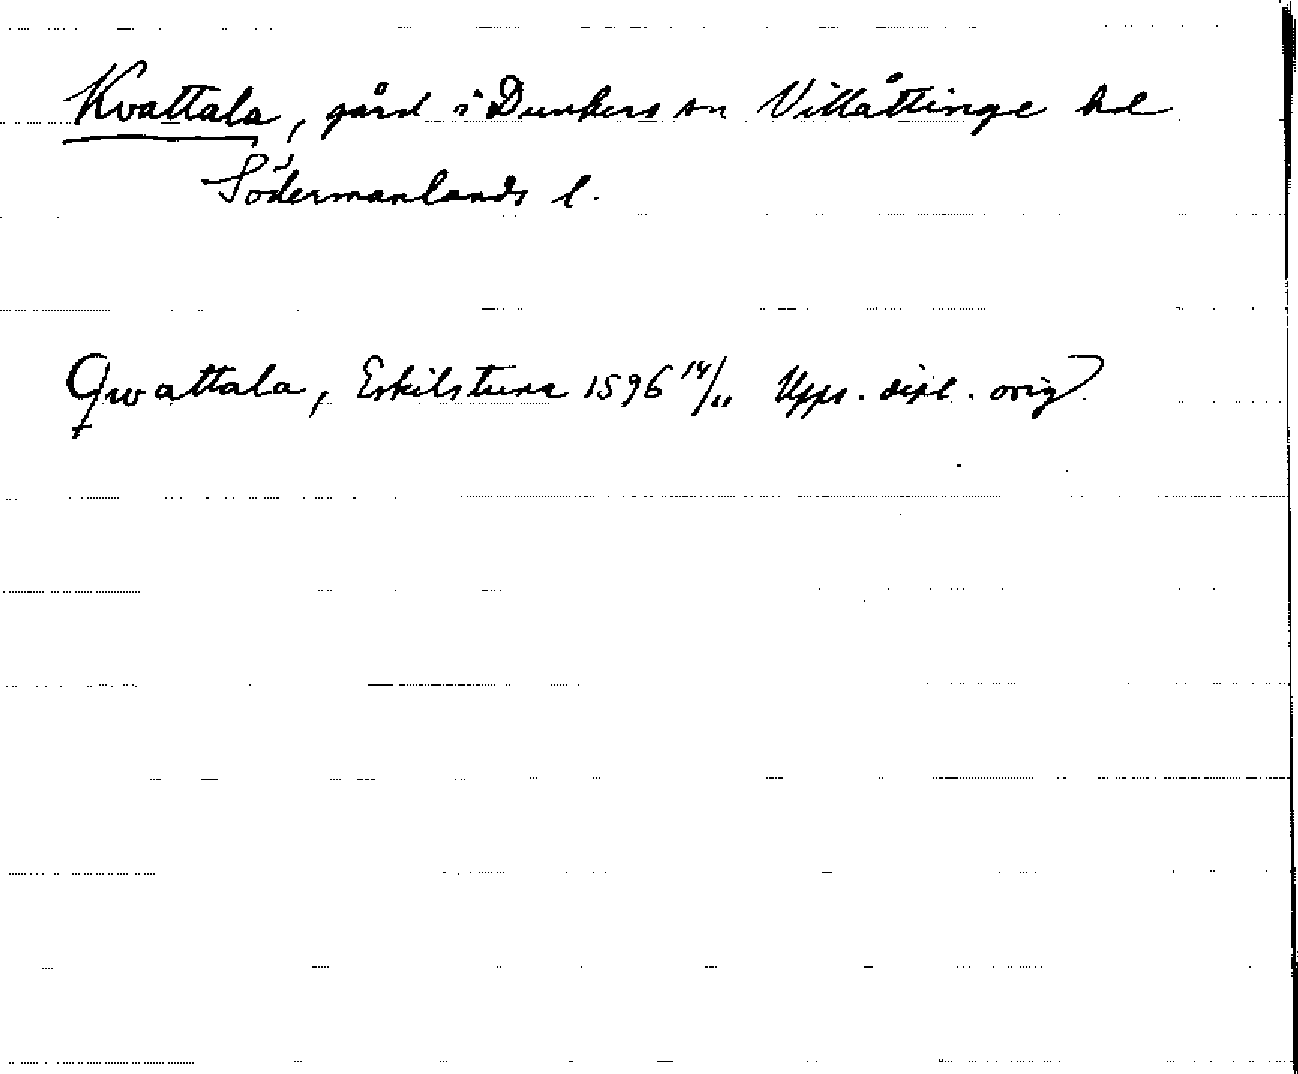 Kvattala, gård i Dunkers sn Villåttinge hd
Södermanlands l.
Qwattala, Eskilstuna 1596 14/11 Upps. dipl. orig